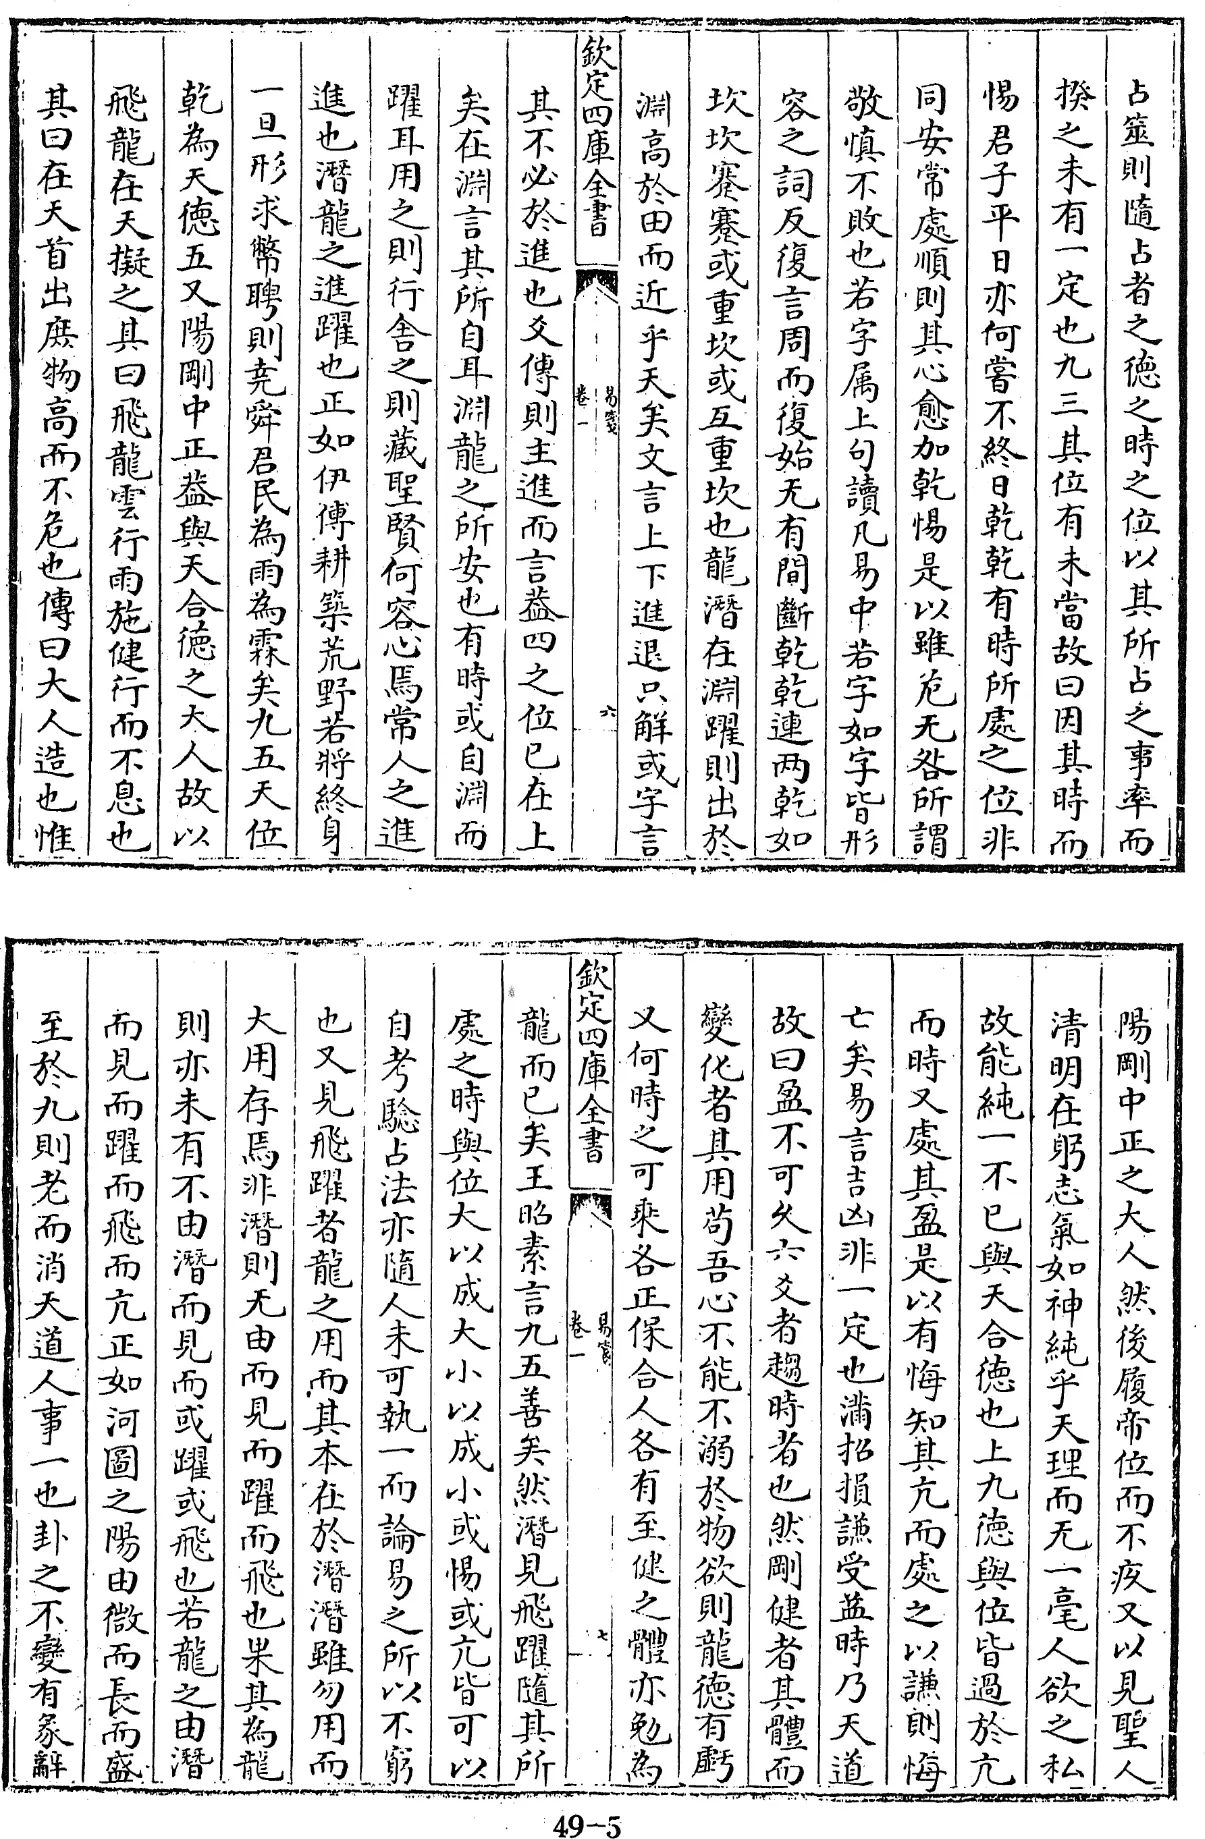 占筮則隨占者之德之時之位以其所占之事率而
揆之未有一定也九三其位有未當故曰因其時而
惕君子平日亦何嘗不終日乾乾有時所處之位非
同安常處順則其心愈加乾惕是以雖危无咎所謂
敬慎不敗也若字属上句讀凡易中若字如字皆形
容之詞反復言周而復始无有間斷乾乾連两乾如
坎坎蹇蹇或重坎或互重坎也龍潛在淵躍則出於
淵高於田而近乎天矣文言上下進退只解或字言
欽定四庫全書
易箋
卷一
六
其不必於進也爻傳則主進而言葢四之位已在上
矣在淵言其所自耳淵龍之所安也有時或自淵而
躍耳用之則行舍之則藏聖賢何容心焉常人之進
進也潛龍之進躍也正如伊傅耕築荒野若將終身
一旦形求幣聘則堯舜君民為雨為霖矣九五天位
乾為天德五又陽剛中正葢與天合德之大人故以
飛龍在天擬之其曰飛龍雲行雨施健行而不息也
其曰在天首出庶物高而不危也傳曰大人造也惟
陽剛中正之大人然後履帝位而不疚又以見聖人
清明在躬志氣如神純乎天理而无一毫人欲之私
故能純一不已與天合德也上九德與位皆過於亢
而時又處其盈是以有悔知其亢而處之以謙則悔
亡矣易言吉凶非一定也滿招損謙受益時乃天道
故曰盈不可久六爻者趨時者也然剛健者其體而
變化者其用苟吾心不能不溺於物欲則龍德有虧
又何時之可乘各正保合人各有至健之體亦勉為
欽定四庫全書
易箋
卷一
七
龍而已矣王昭素言九五善矣然潛見飛躍隨其所
處之時與位大以成大小以成小或惕或亢皆可以
自考驗占法亦隨人未可執一而論易之所以不窮
也又見飛躍者龍之用而其本在於潛潛雖勿用而
大用存焉非潛則无由而見而躍而飛也果其為龍
則亦未有不由潛而見而或躍或飛也若龍之由潛
而見而躍而飛而亢正如河圖之陽由微而長而盛
至於九則老而消天道人事一也卦之不變有彖辭
49-5